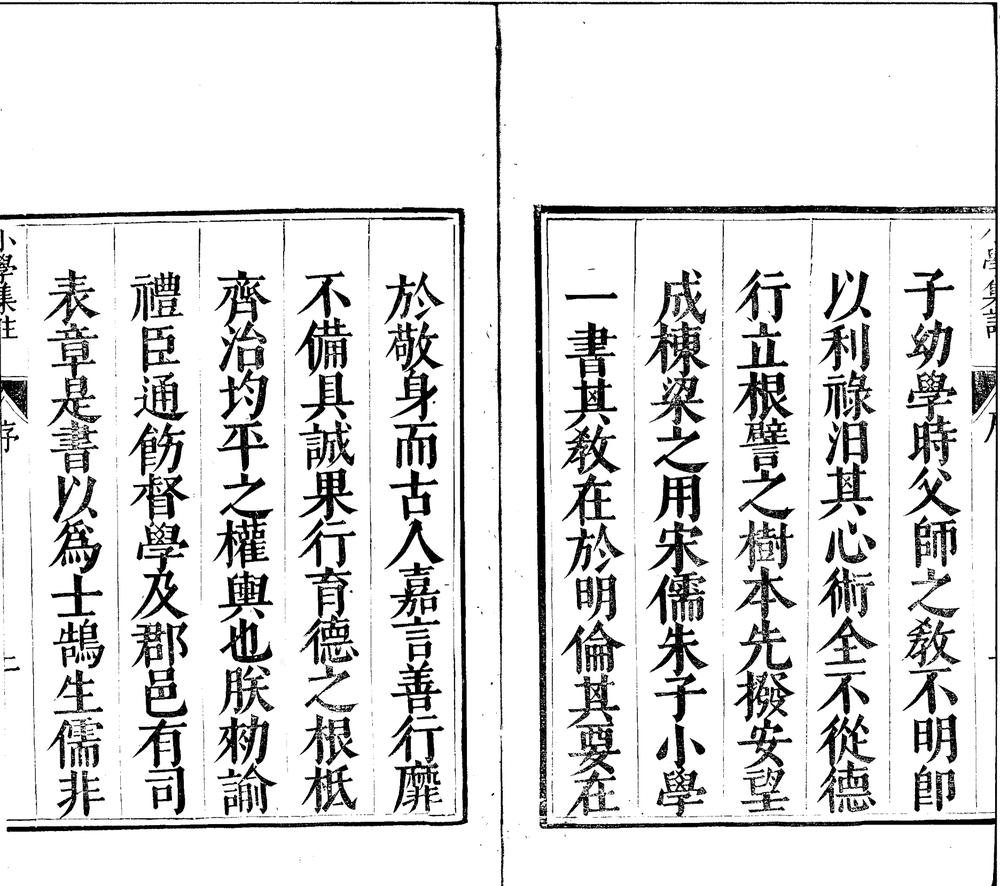 子幼學時父師之教不明卽
以利祿汨其心術全不從德
行立根譬之樹本先撥安望
成棟梁之用宋儒朱子小學
一書其教在於明倫其要在
於敬身而古人嘉言善行靡
不備具誠果行育德之根柢
齊治均平之權輿也朕勑諭
禮臣通飭督學及郡邑有司
表章是書以為士鵠生儒非
小學集註
序
二